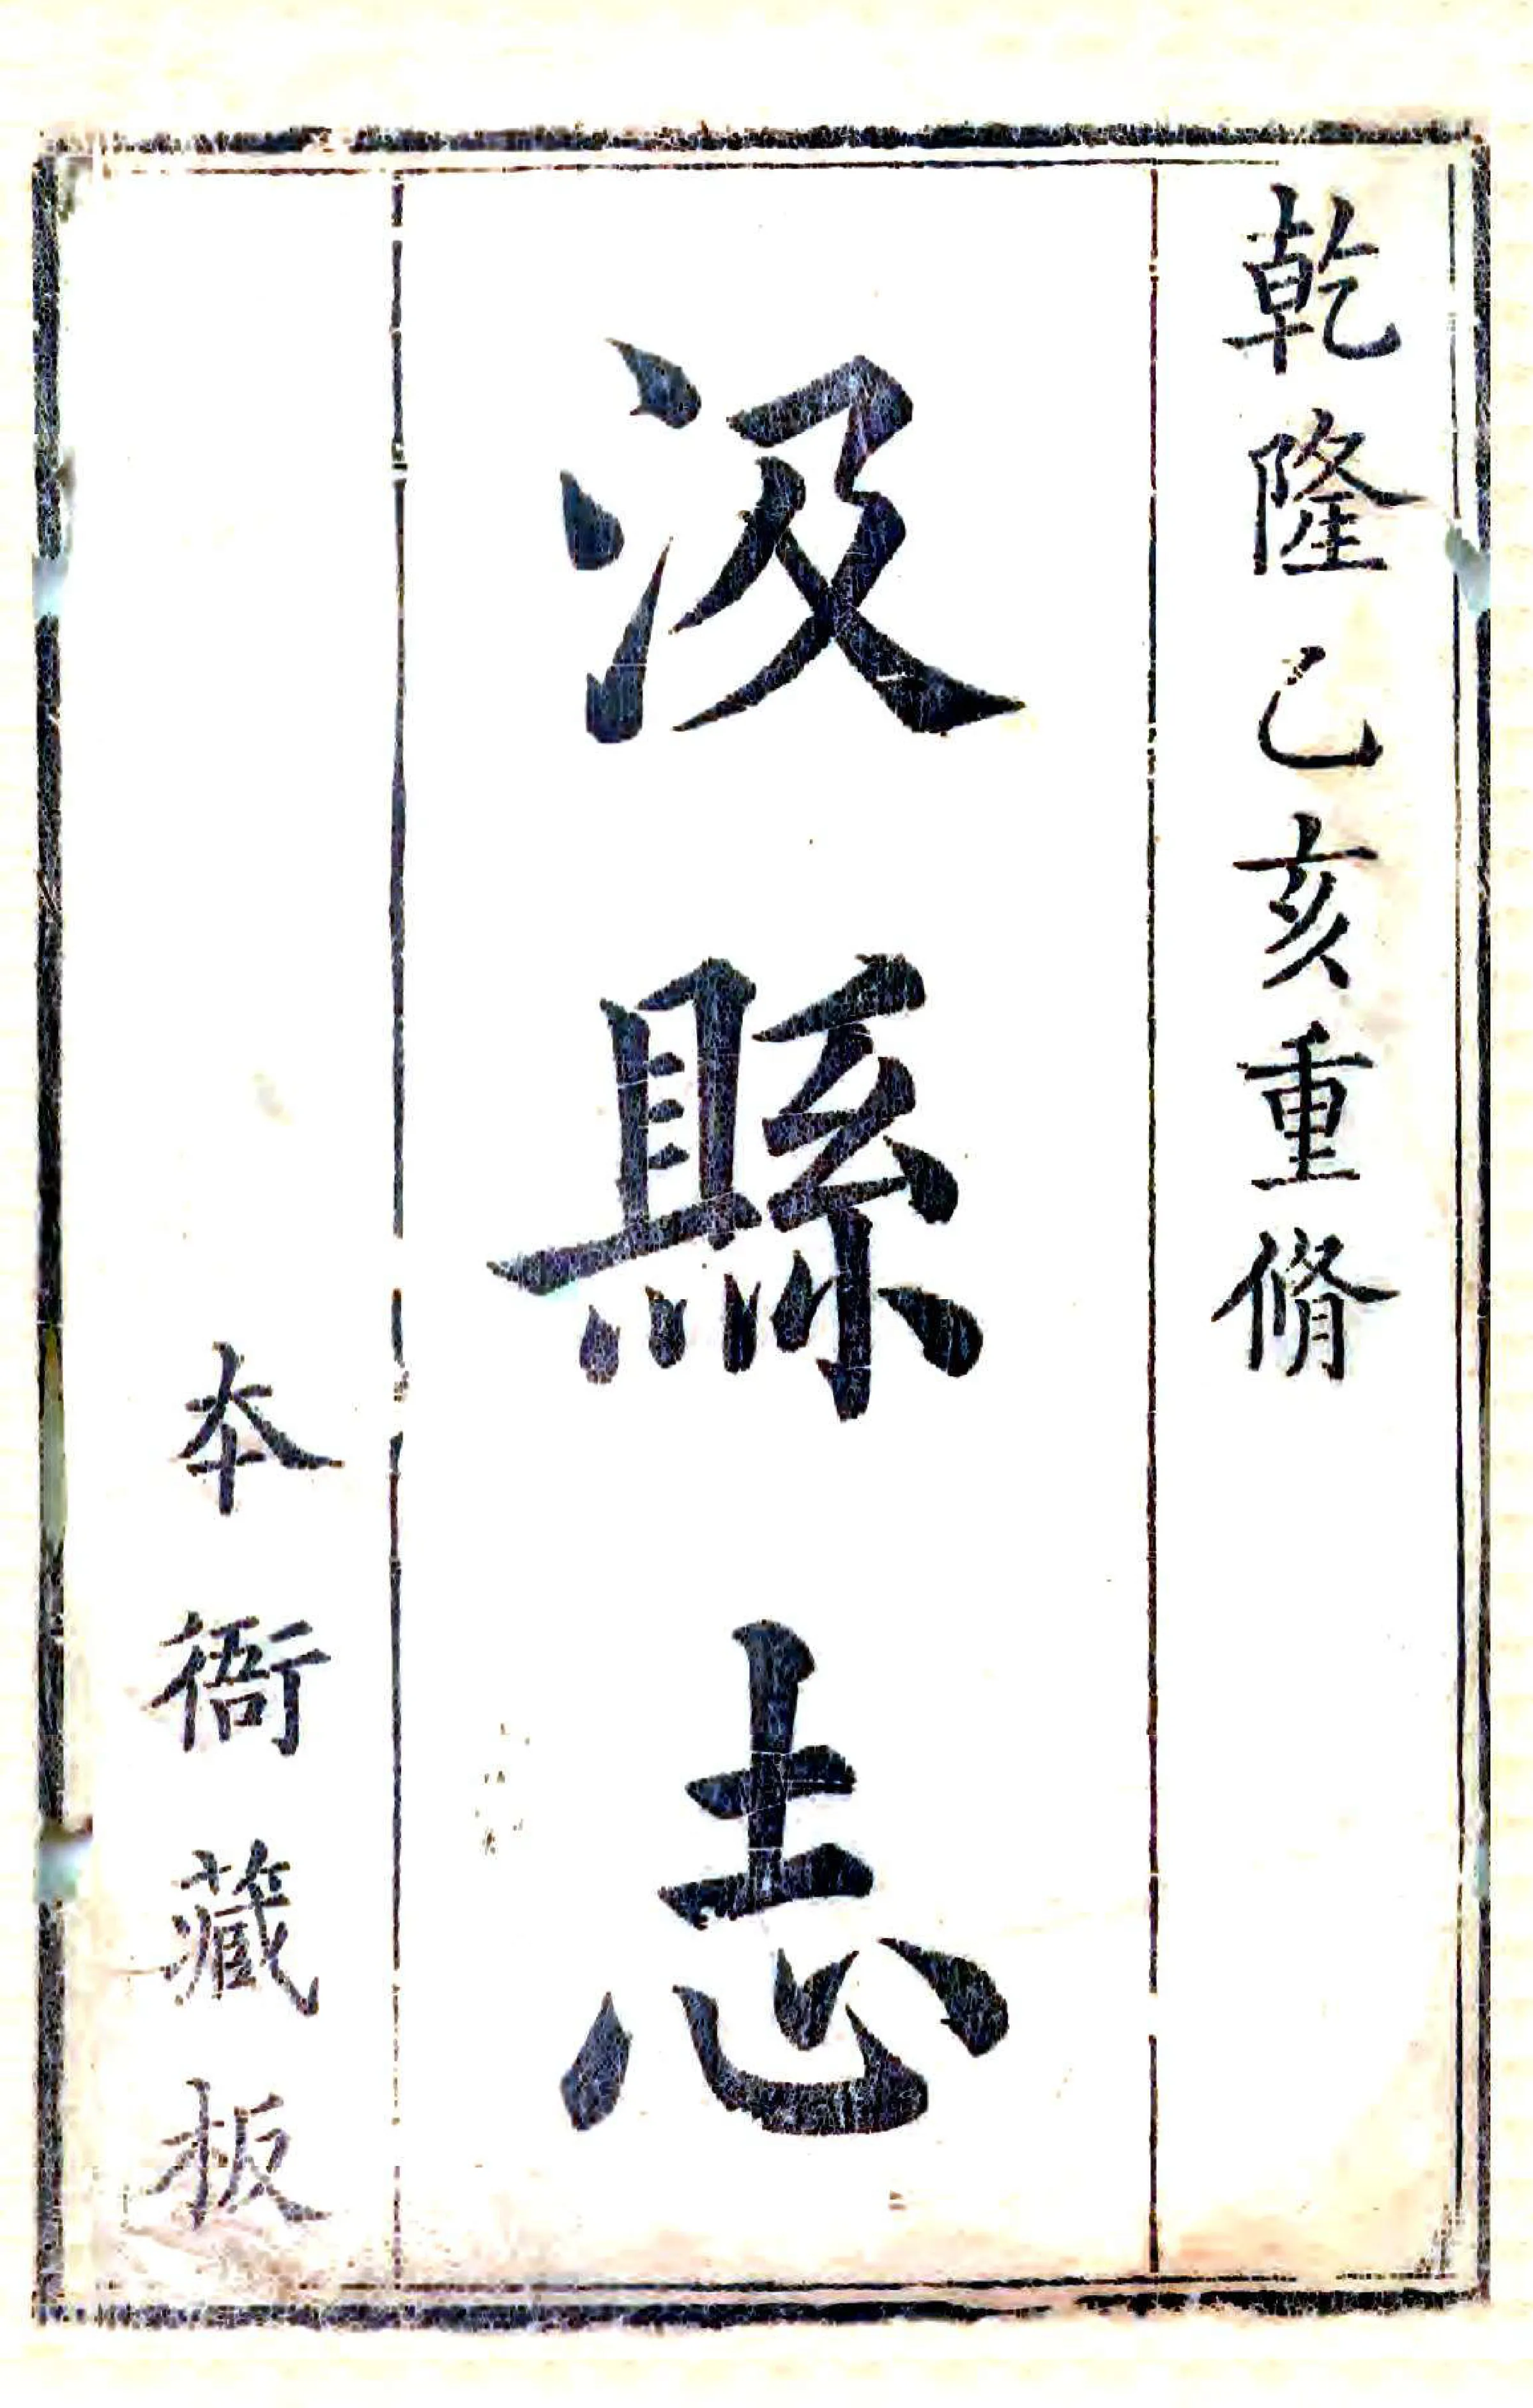 乾隆乙亥重脩
汲縣志
本衙藏板